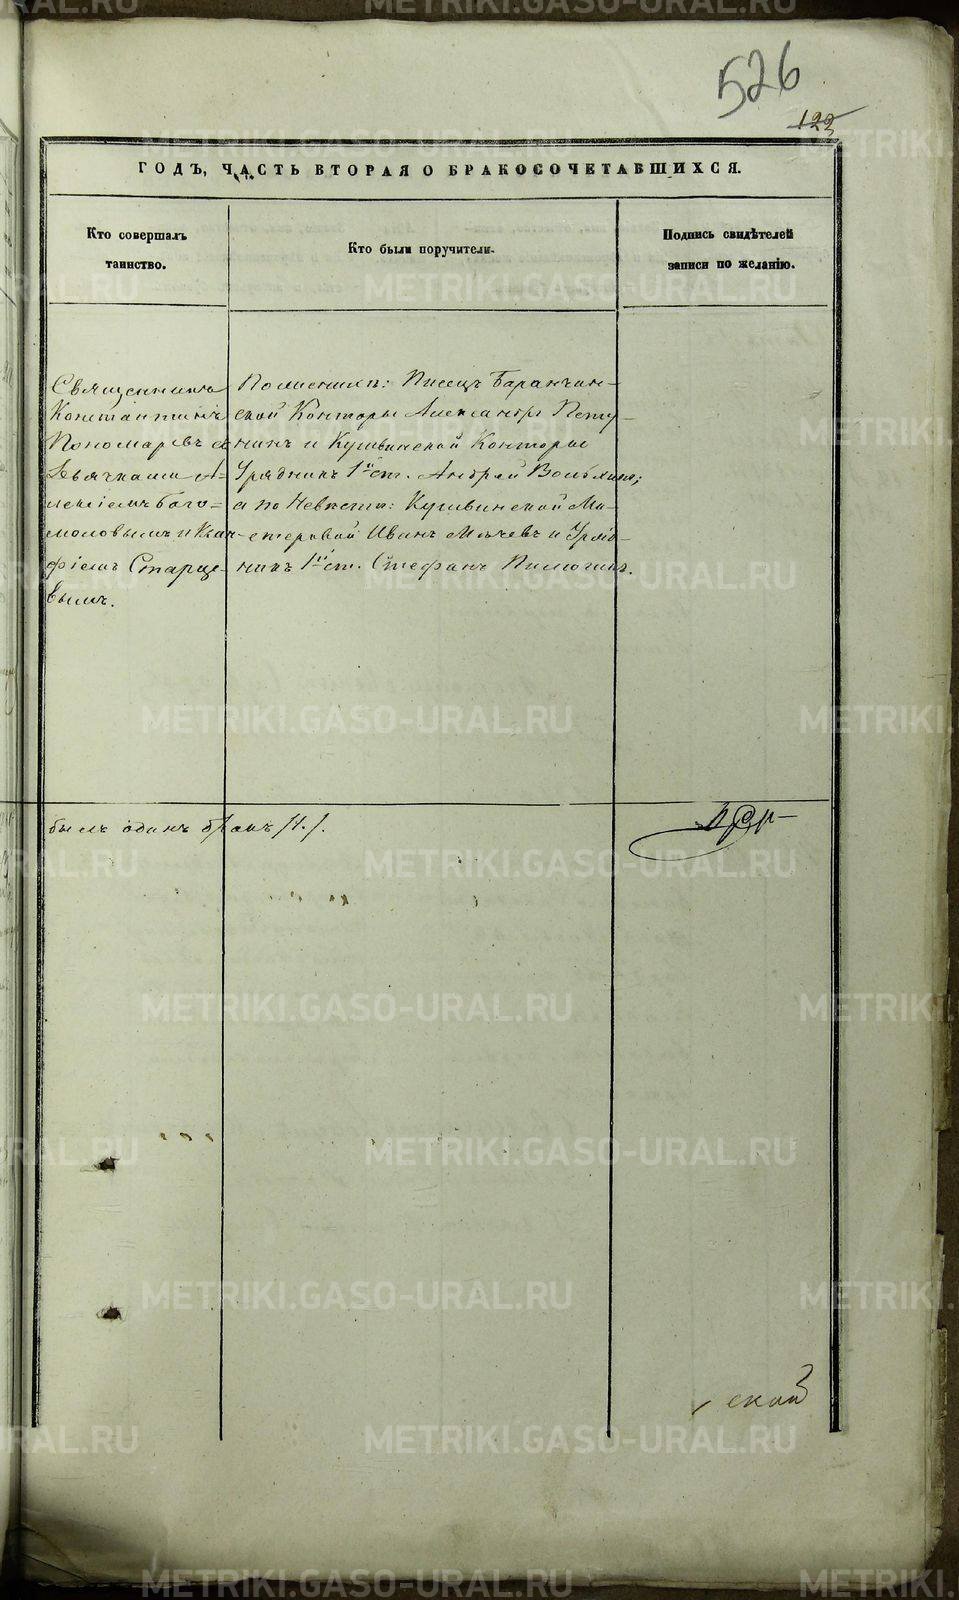 526
123
ГОДЪ, ЧАСТЬ ВТОРАЯ О БРАКОСОЧЕТАВШИХСЯ.
Кто совершалъ
таинство.
Кто были поручители.
Подпись свидѣтелей
записи по желанію.
Священникъ
Константинъ
Пономаревъ съ
Дьячками А-
лексіемъ Бого-
моловымъ и
фіемъ Старце-
вымъ.
По жениху: Писецъ Баранчин-
ской Конторы Александръ Пету-
нинъ и Кушвинской Конторы
Урядникъ 1й ст. Андрей
а по Невѣстѣ: Кушвинской Ма-
стеровой Иванъ Мячевъ и Уряд-
никъ 1й ст. Стефанъ Пилюгинъ.
былъ одинъ бракъ /1./.
ской
METRIKI.GASO-URAL.RU